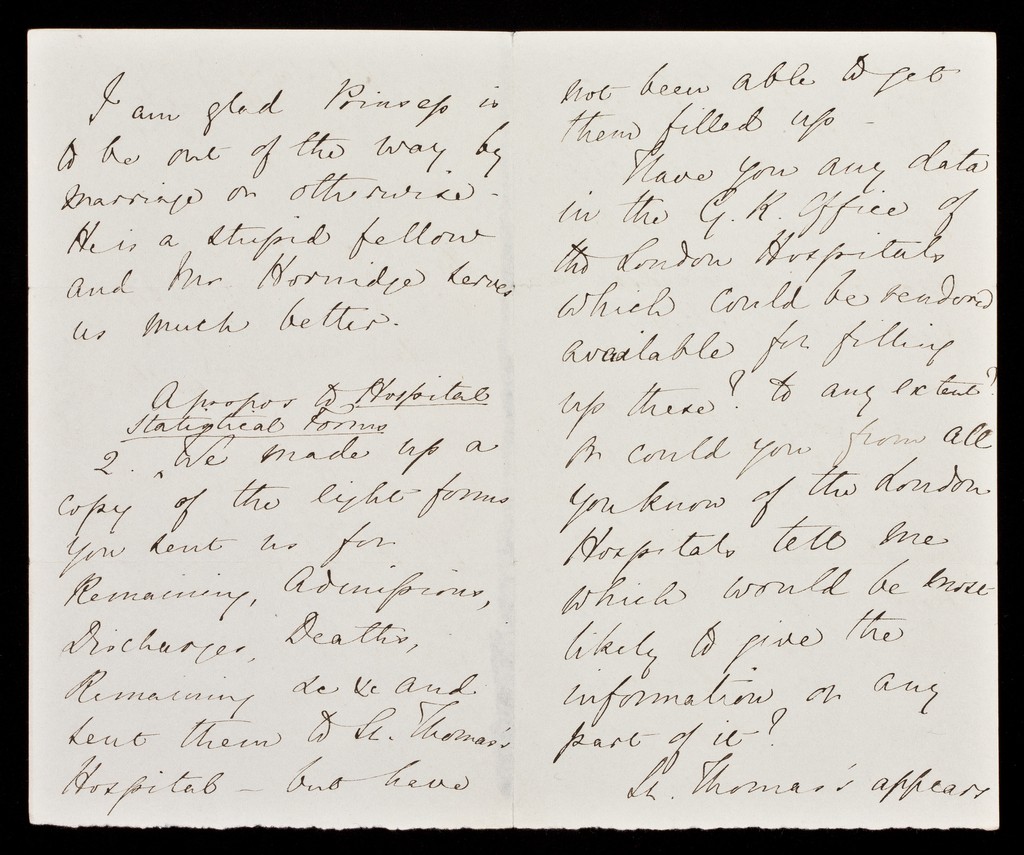 I am glad Prinsep is
to be out of the way by
marriage or otherwise -
He is a stupid fellow
and Mr Hornidge serves
us much better.
Apropos to Hospital
Statistical Forms
2. ^ We made up a
copy of the light forms
you sent us for
Remaining, Admissions,
Discharges, Deaths,
Remaining &c &c and
sent them to St. Thomas's
Hospital - but have
not been able to get
them filled up -
Have you any data
in the G. R. Office of
the London Hospitals
which could be rendered
available for filling
up these? to any extent?
Or could you from all
you know of the London
Hospitals tell me
which would be most
likely to give the
information or any
part of it?
St. Thomas's appears